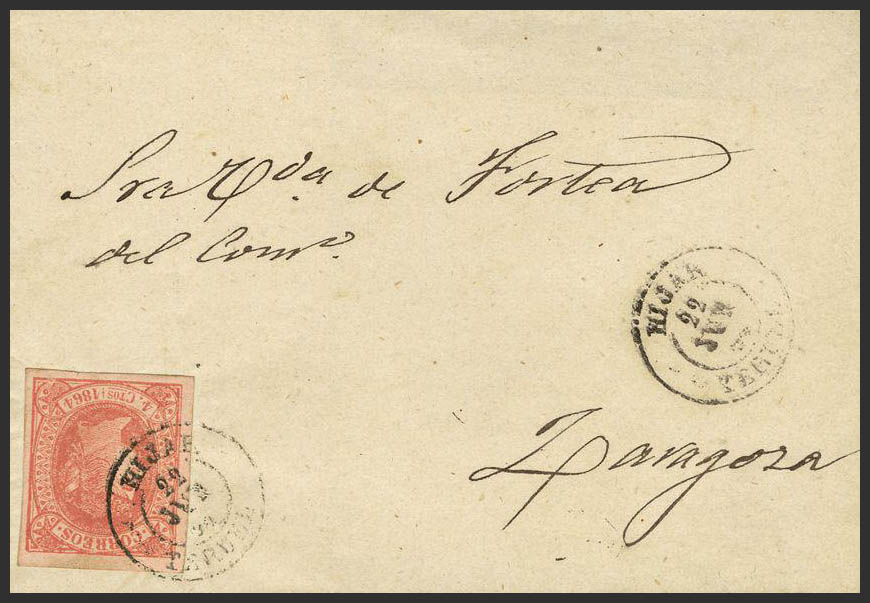 Sra V.da de Fortea
del Com.o
HIJAR
22
JUN
TERUEL
Zaragoza
4 CTOS 1864
CORREOS
HIJAR
22
JUN
TERUEL